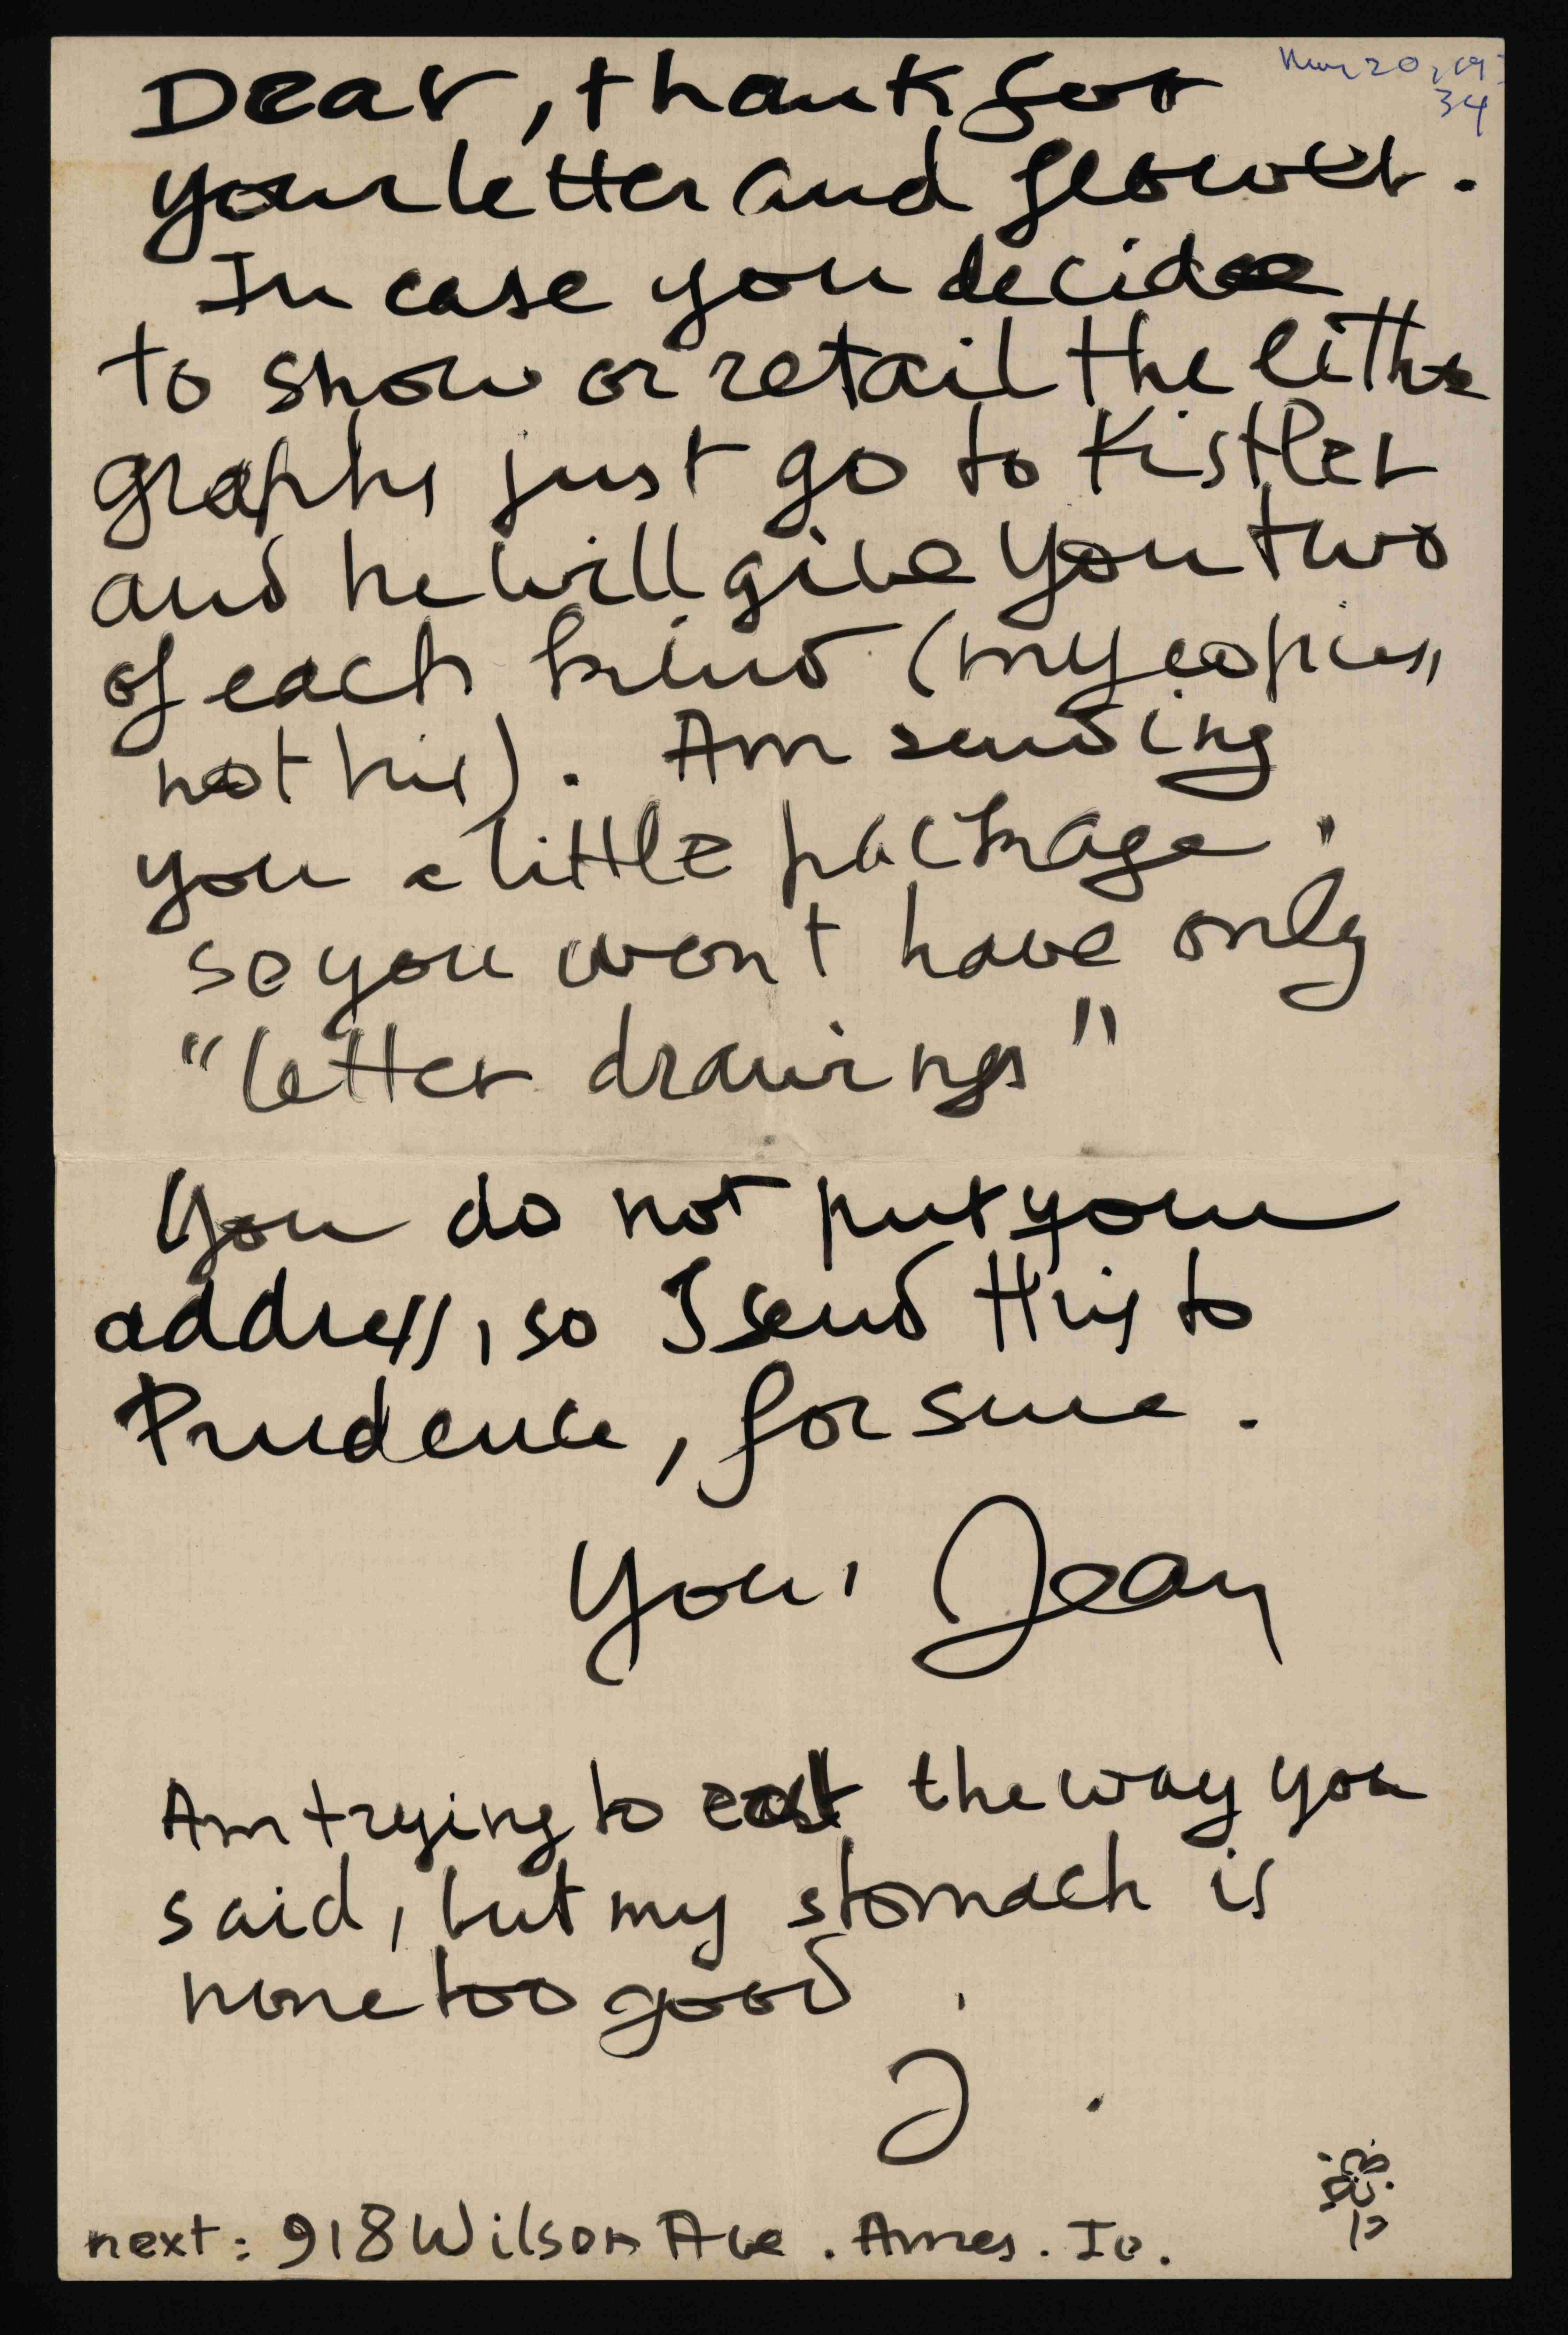 Nov 20, 19
34
Dear, thank for
your letter and flower.
In case you decide
to show or retail the litho
graphs just go to Kistler
and he will give you two
of each kind (my copies,
not his). Am sending
you a little package,
so you won't have only
"letter drawings"
You do not put your
address, so I send this to
Prudence, for sure.
Your Jean
Am trying to eat the way you
said, but my stomach is
none too good.
J.
next: 918 Wilson Ave. Ames. Io.